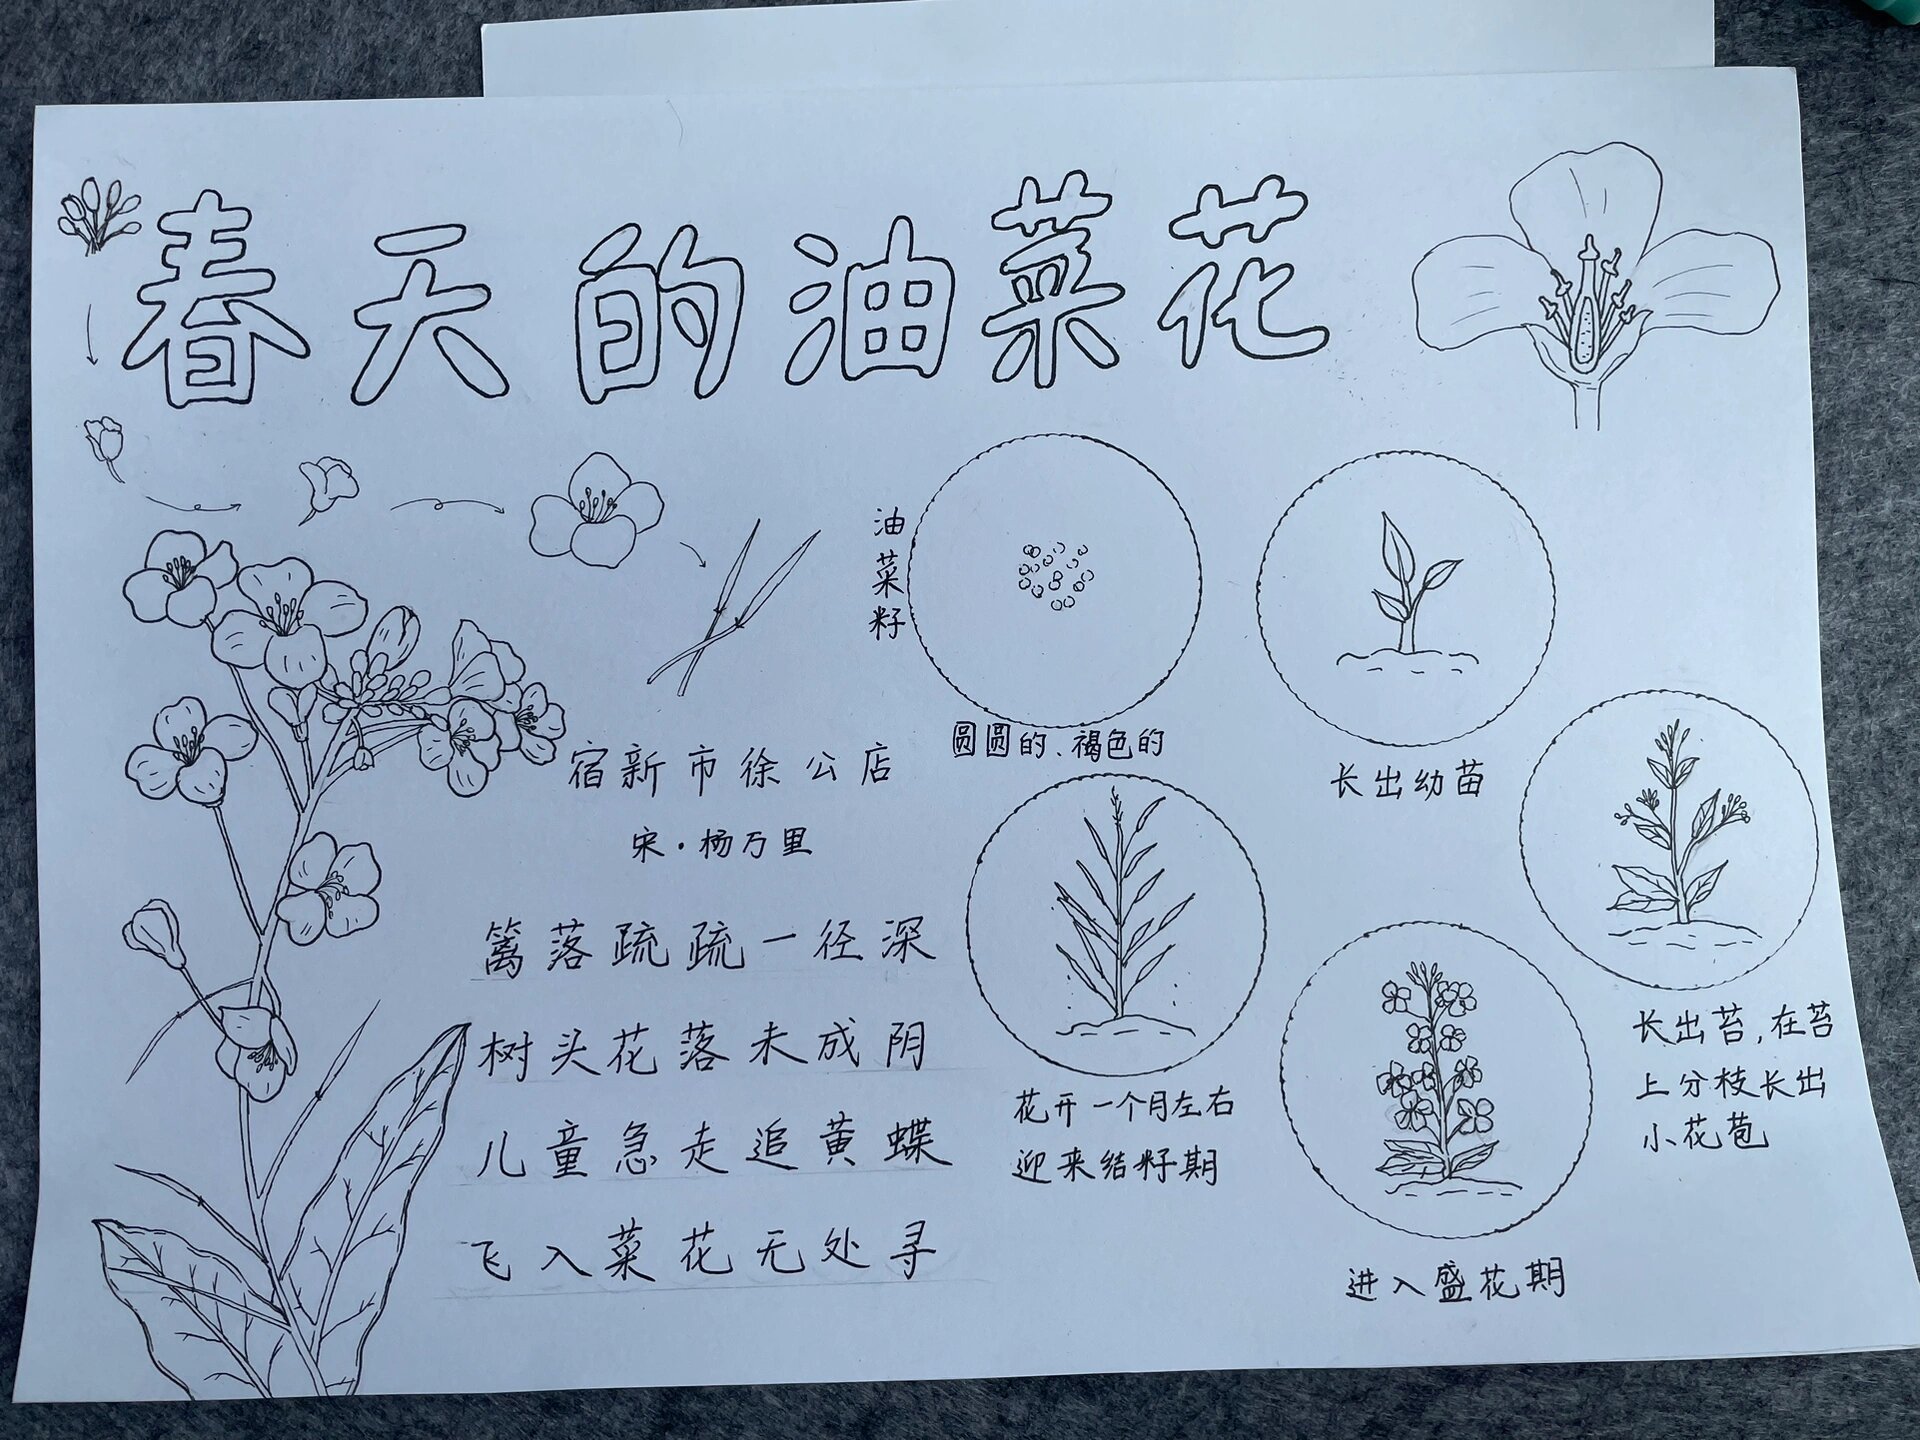 春天的油菜花
油菜籽
圆圆的、褐色的
长出幼苗
长出苔,在苔
上分枝长出
小花苞
进入盛花期
花开一个月左右
迎来结籽期
宿新市徐公店
宋·杨万里
篱落疏疏一径深
树头花落未成阴
儿童急走追黄蝶
飞入菜花无处寻